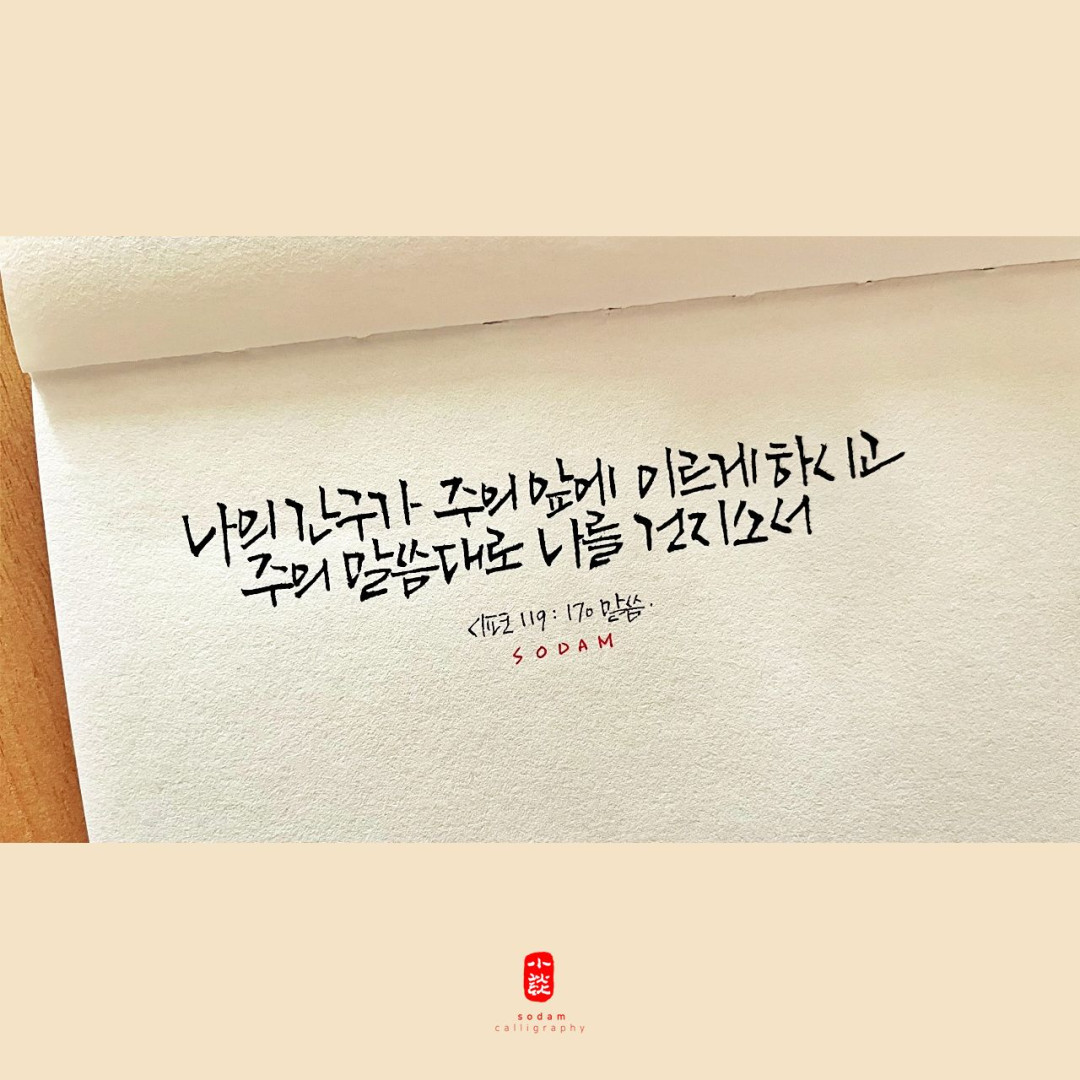 나의 간구가 주의 앞에 이르게 하시고
주의 말씀대로 나를 건지소서
시편 119:170 말씀.
SODAM
小談
sodam
calligraphy